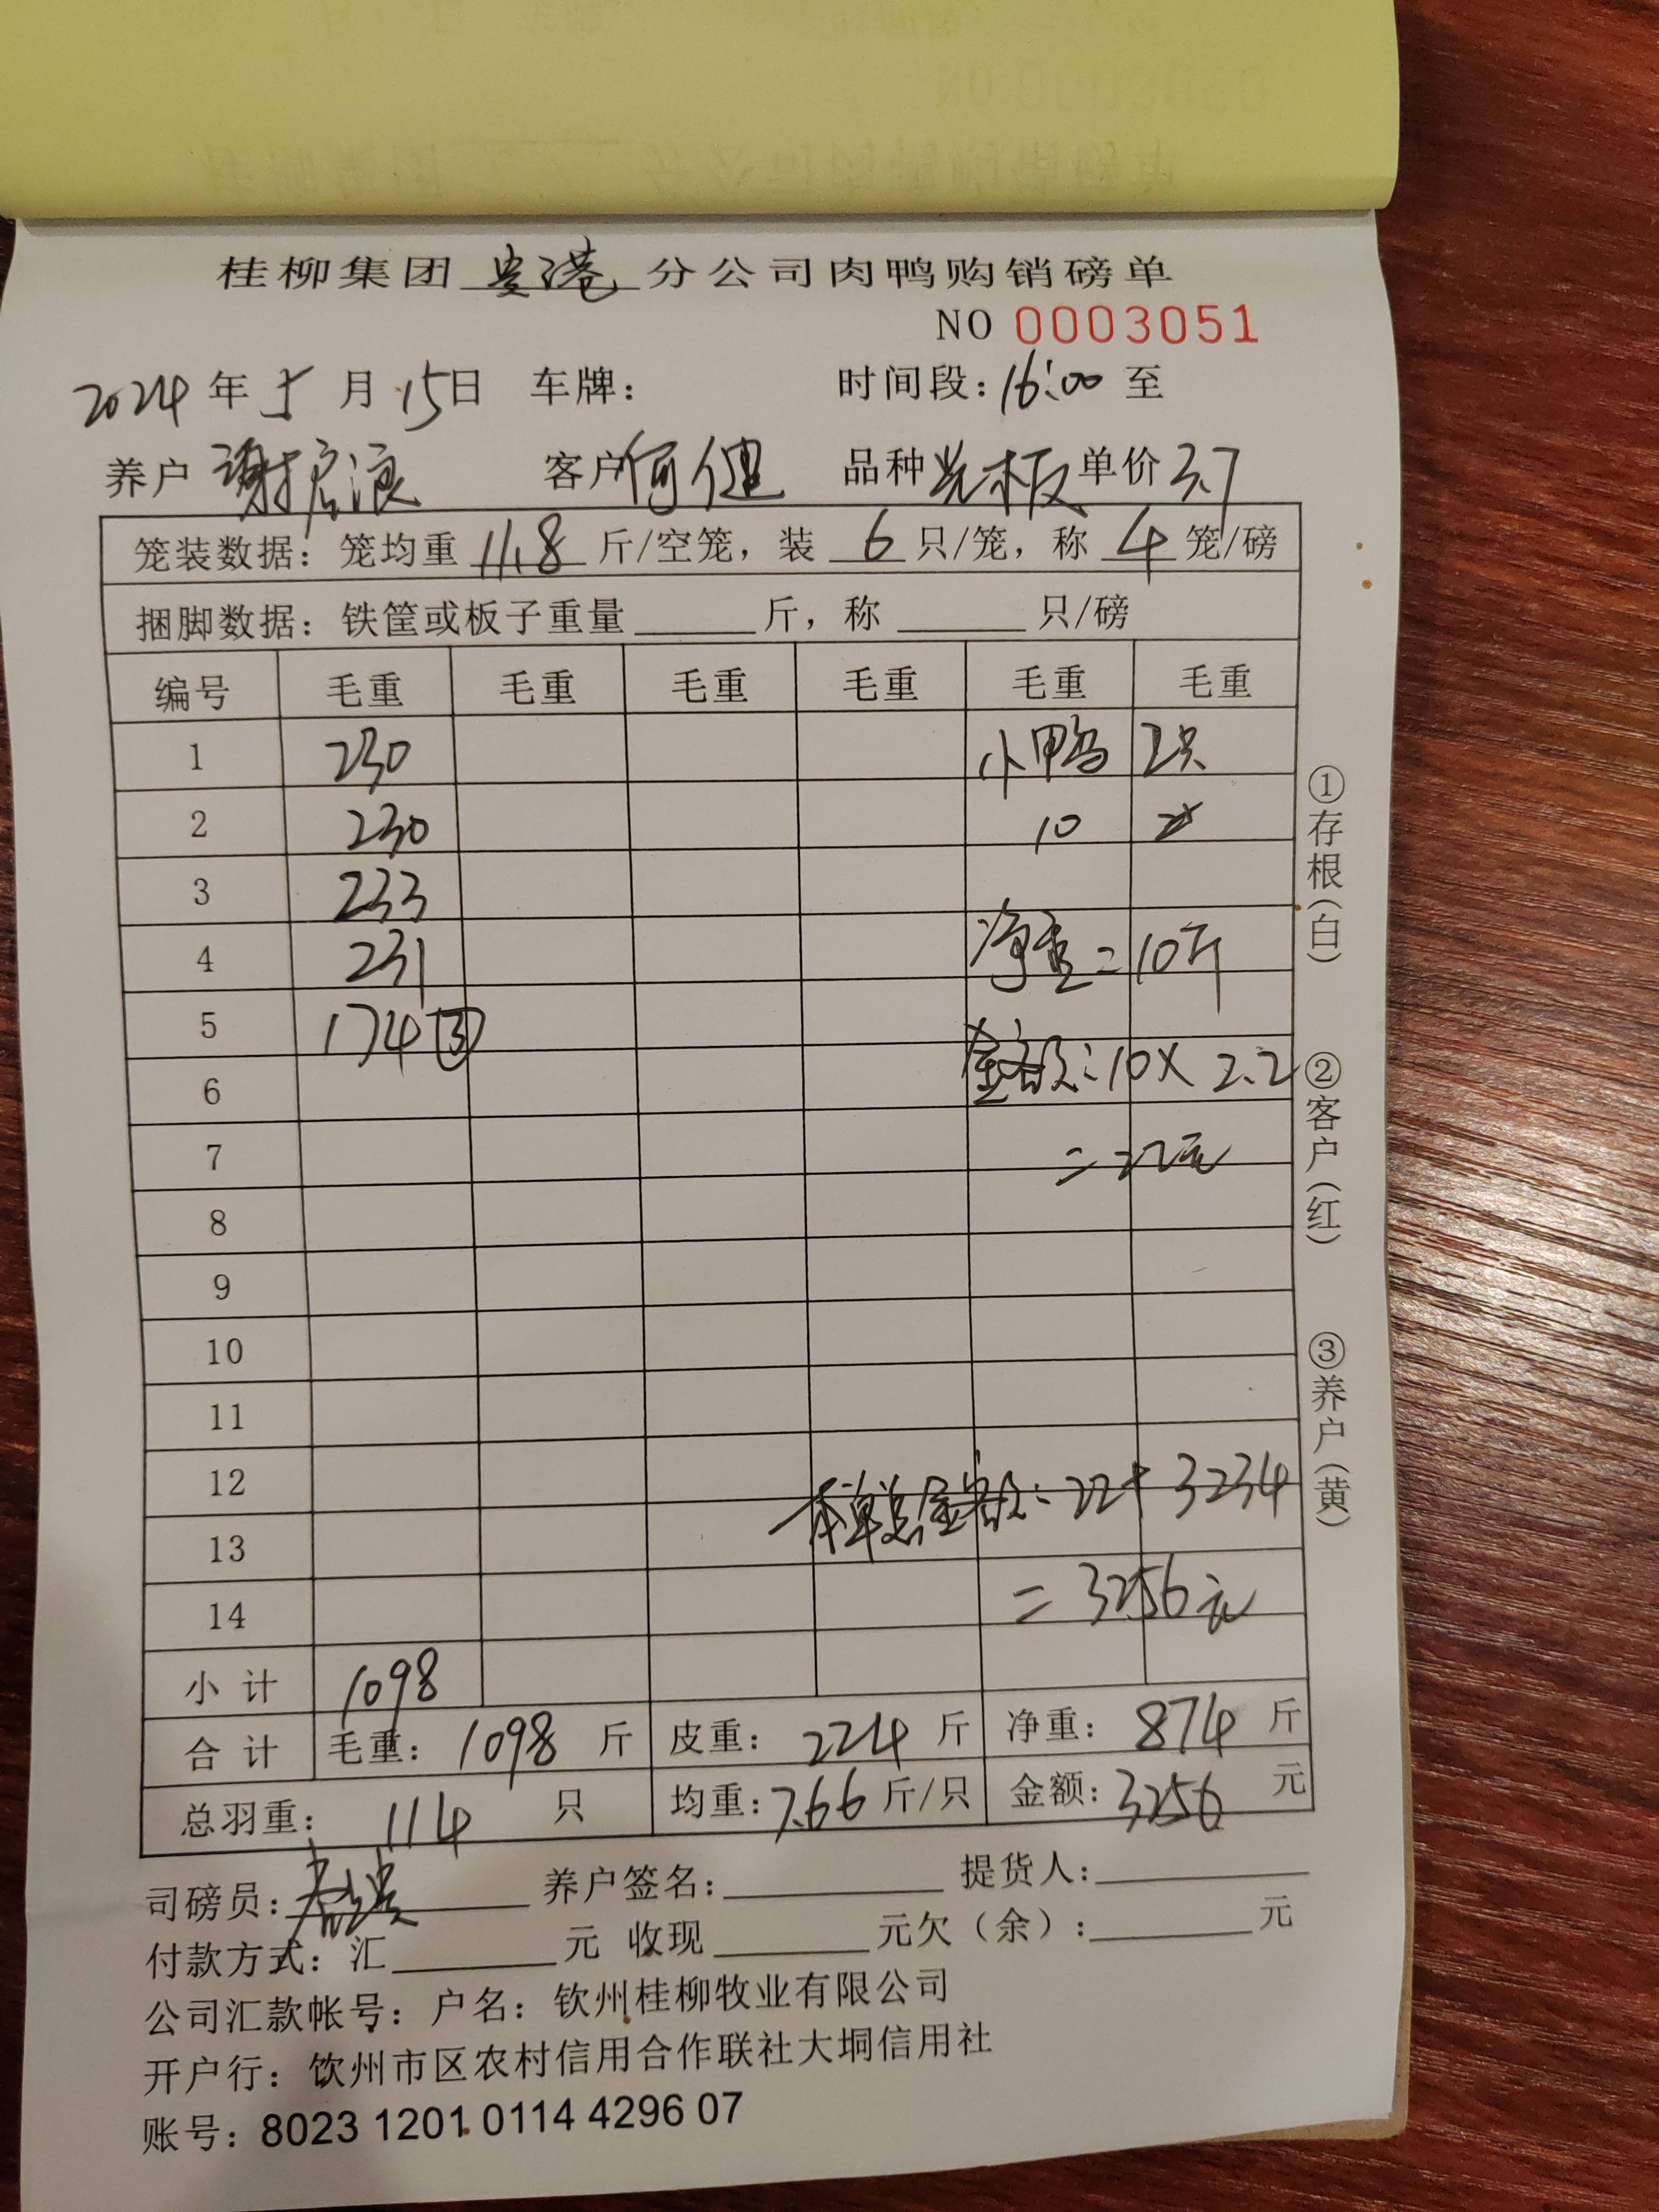 桂柳集团 贵港 分公司肉鸭购销磅单
NO 0003051
2024 年 5 月 15日 车牌： 时间段：16:00 至
养户 谢启浪 客户 何健 品种 光板 单价 3.7
笼装数据：笼均重 11.8 斤/空笼，装 6 只/笼，称 4 笼/磅
捆脚数据：铁筐或板子重量 斤，称 只/磅
编号 毛重 毛重 毛重 毛重 毛重 毛重
1 230 小鸭 2只
2 230 10
3 233
4 231 净重=10斤
5 174 ③
6 金额：10×2.2
7 =22元
8
9
10
11
12 本单总金额：22+3234
13
14 =3256元
小计 1098
合计 毛重：1098 斤 皮重：224 斤 净重：874 斤
总羽重：114 只 均重：7.66 斤/只 金额：3256 元
司磅员： 养户签名： 提货人：
付款方式：汇 元 收现 元欠（余）： 元
公司汇款帐号：户名：钦州桂柳牧业有限公司
开户行：钦州市区农村信用合作联社大垌信用社
账号：8023 1201 0114 4296 07
①存根（白）
②客户（红）
③养户（黄）